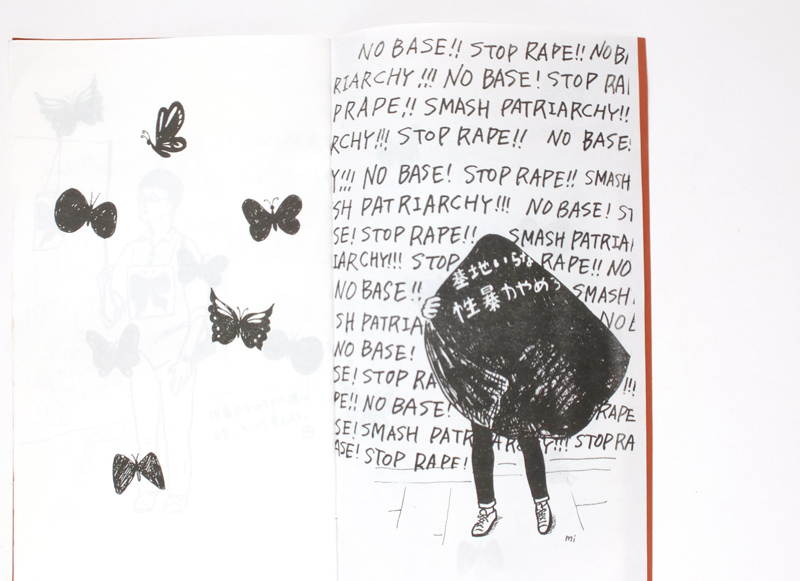 NO BASE!! STOP RAPE!! NO B
RIARCHY!!! NO BASE! STOP RA
PRAPE!! SMASH PATRIARCHY!!
RCHY!!! STOP RAPE!! NO BASE!
Y!!! NO BASE! STOP RAPE!! SMASH
SH PATRIARCHY!!! NO BASE! ST
SE! STOP RAPE!! SMASH PATRIA
IARCHY!!! STOP RAPE!! NO
基地いらな
性暴力やめろ
NO BASE!! SMASH
SH PATRIA NO B
NO BASE!
SE! STOP RA !!!
PE!! NO BASE! RAPE
SE! SMASH PATRIARCHY!!! STOP RA
ASE! STOP RAPE!
mi